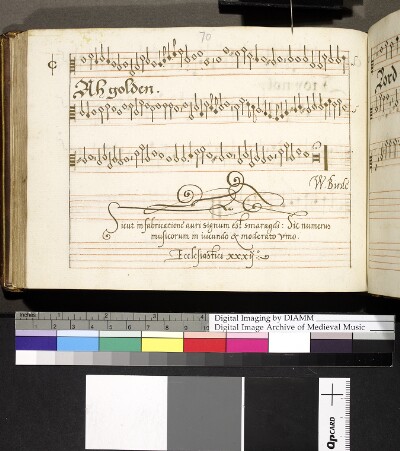 70
Ah golden.
W. Birde
Sicut in fabricatione auri signum est smaragdi: Sic numerus
musicorum in iucundo & moderato vino.
Ecclesiastici xxxij.
Lord
inches
1 2 3 4
Digital Imaging by DIAMM
Digital Image Archive of Medieval Music
QPCARD